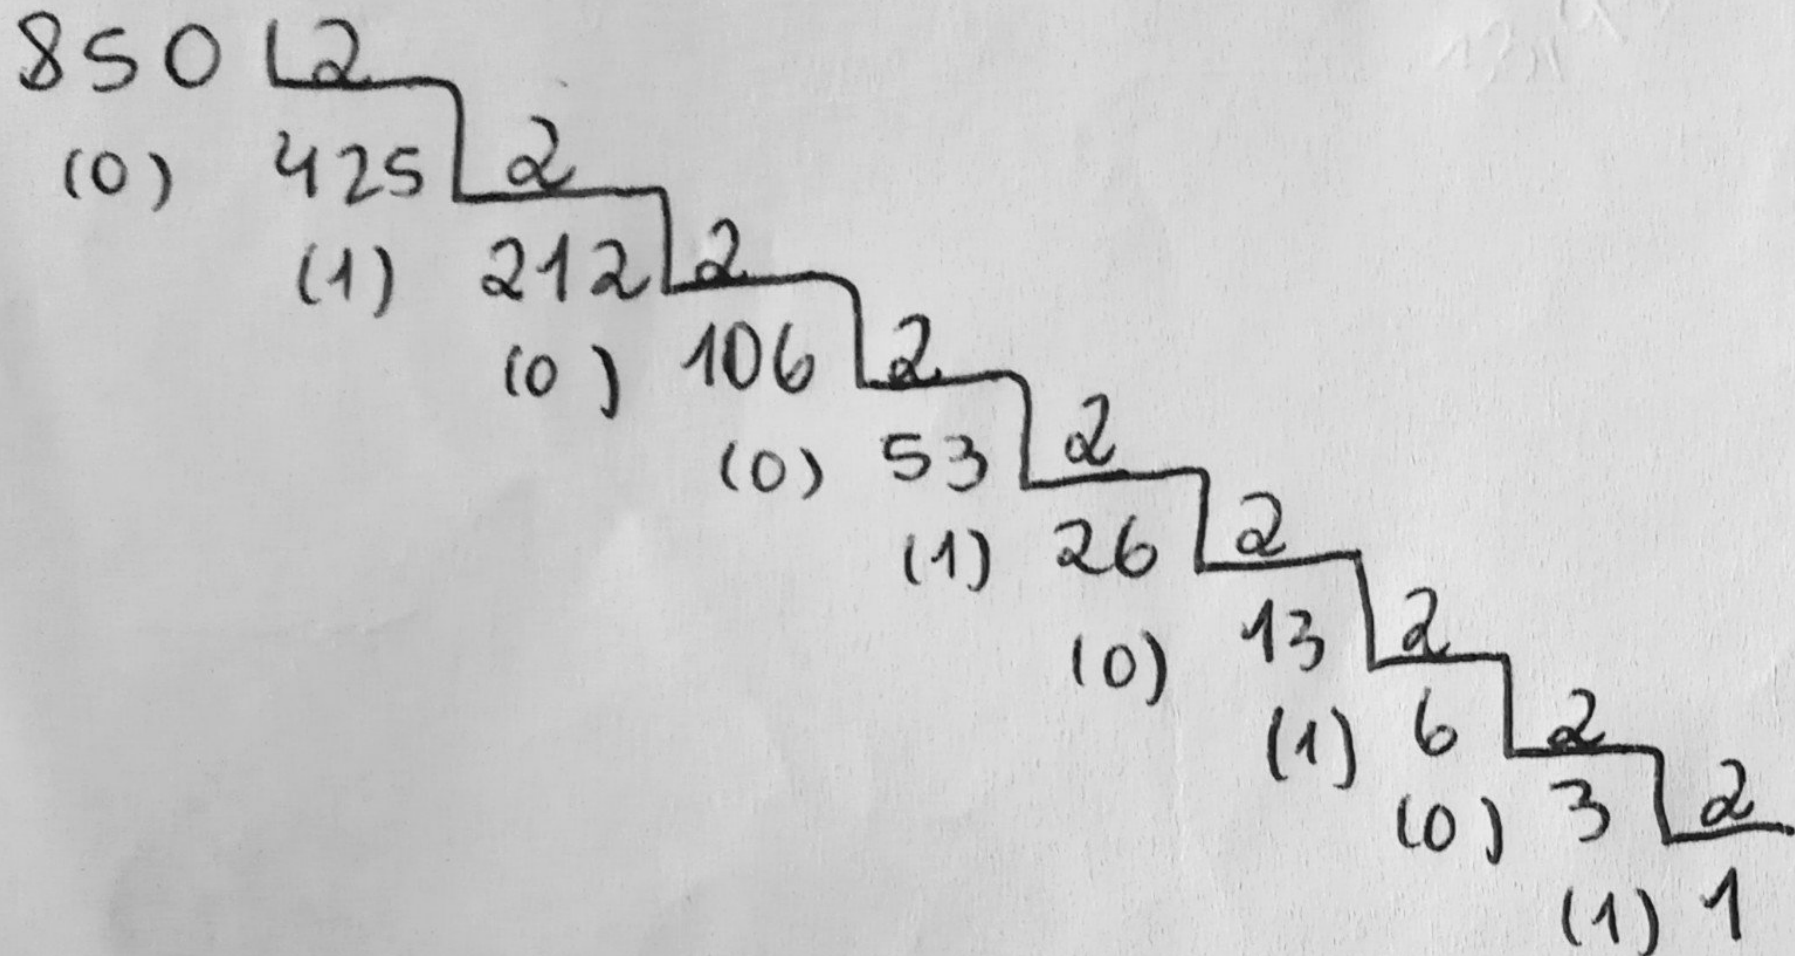 850 2
(0) 425 2
(1) 212 2
(0) 106 2
(0) 53 2
(1) 26 2
(0) 13 2
(1) 6 2
(0) 3 2
(1) 1